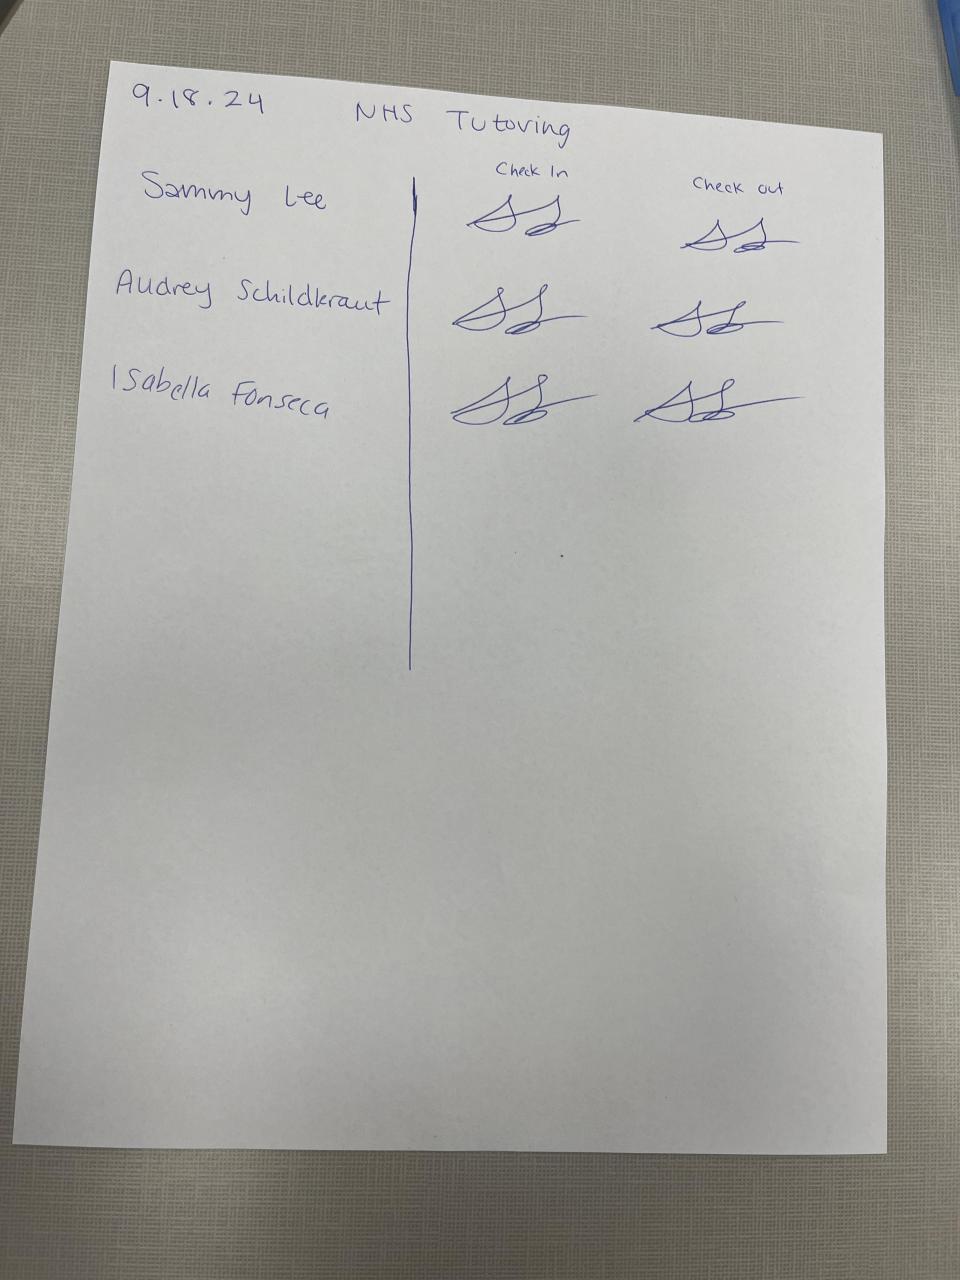 9.18.24 NHS Tutoring
Check In Check out
Sammy Lee
Audrey Schildkraut
Isabella Fonseca